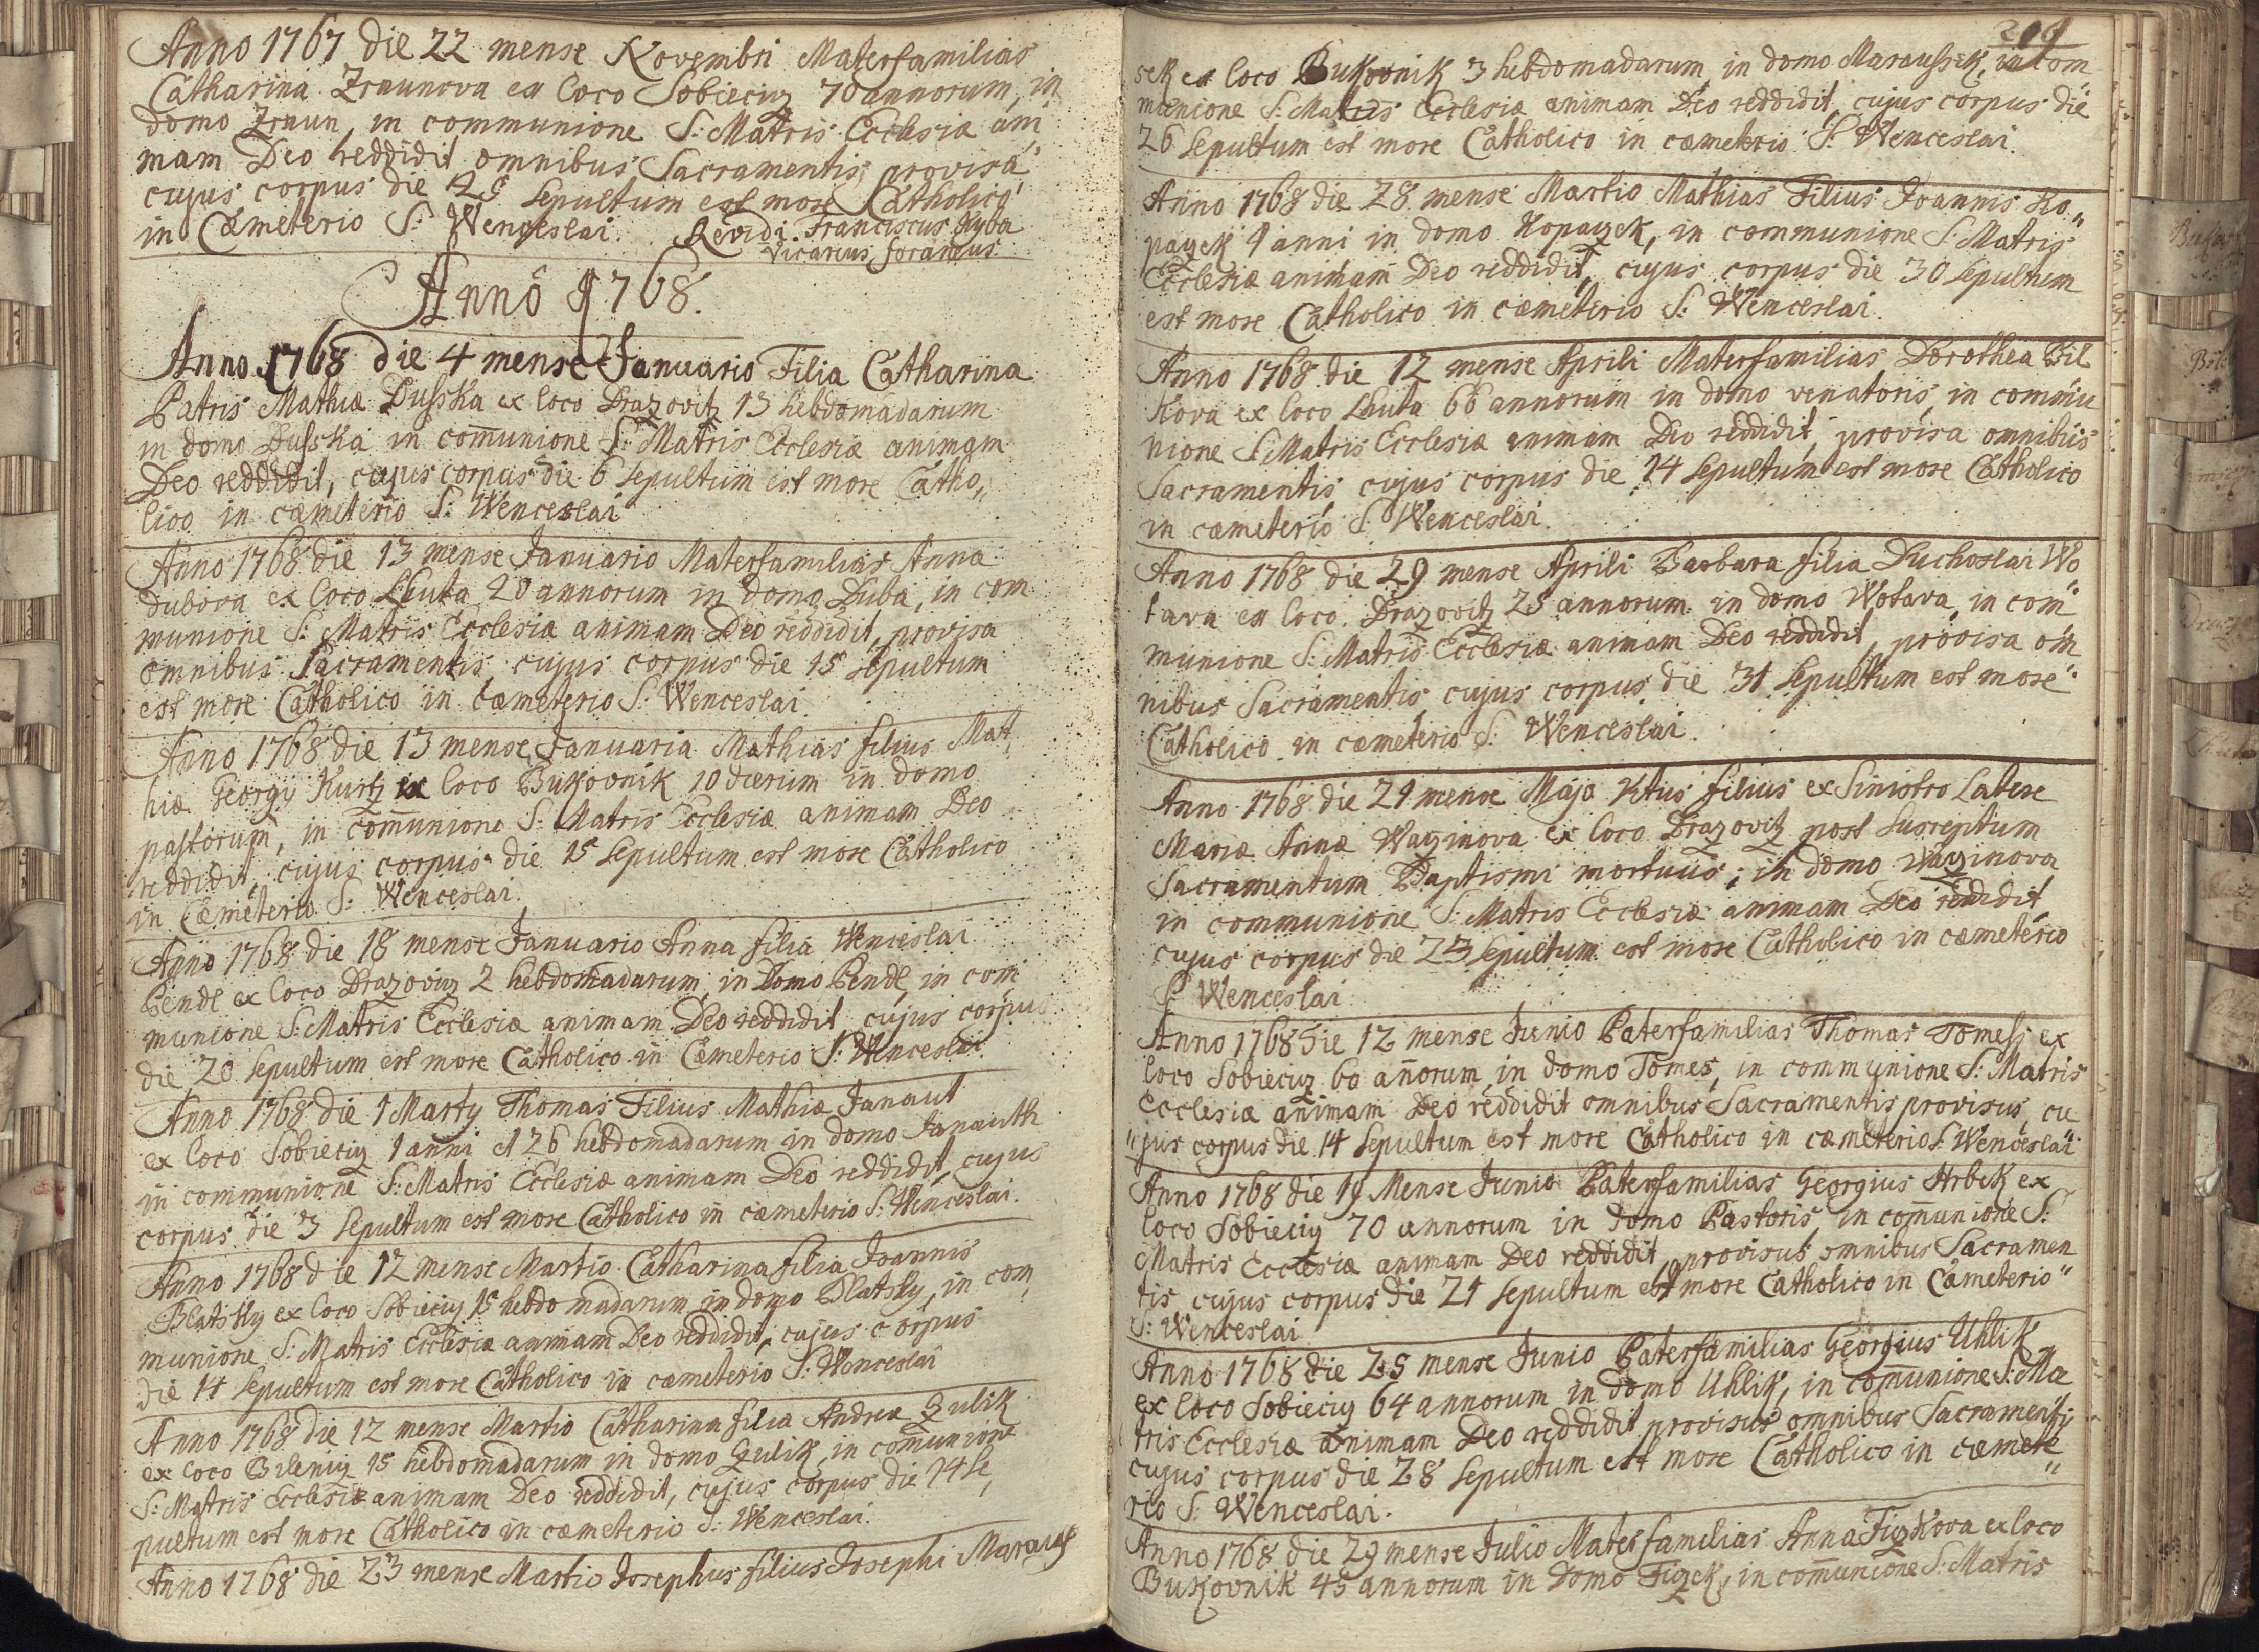 Anno 1767 die 22 mense Novembri Materfamilias
Catharina Zraunova ex loco Sobieciz 70 annorum, in
domo Zraun, in communione S: Matris Ecclesiæ ani
mam Deo reddidit omnibus Sacramentis provisa
cujus corpus die 25 sepultum est more Catholico
in Cæmeterio S: Wenceslai. Revidi. Franciscus Kyba
vicarius foraneus.
Annô 1768.
Anno 1768 die 4 mense Januario Filia Catharina
Patris Mathiæ Dusska ex loco Drazovitz 13 hebdomadarum
in domo Dusska in com̄unione S: Matris Ecclesiæ animam
Deo reddidit, cujus corpus die 6 sepultum est more Catho„
lico in cæmeterio S: Wenceslai
Anno 1768 die 13 mense Januario Materfamilias Anna
Dubova ex loco Lhuta 20 annorum in domo Duba, in com
munione S: Matris Ecclesiæ animam Deo reddidit, provisa
omnibus Sacramentis, cujus corpus die 15 sepultum
est more Catholico in cæmeterio S: Wenceslai
Anno 1768 die 13 mense Januaria Mathias filius Mat
hiæ Georgy Kurtz ex loco Bukovnik 10 dierum in domo
pastorum, in com̄unione S: Matris Ecclesiæ animam Deo
reddidit, cujus corpus die 15 sepultum est more Catholico
in Cæmeterio S: Wenceslai.
Anno 1768 die 18 mense Januario Anna filia Wenceslai
Bendl ex loco Drazoviz 2 hebdomadarum, in Domo Bendl, in com
munione S: Matris Ecclesiæ animam Deo reddidit cujus corpus
die 20 sepultum est more Catholico in Cæmeterio S: Wenceslai
Anno 1768 die 1 Marty Thomas Filius Mathiæ Janaut
ex loco Sobieciz 1 anni et 26 hebdomadarum in domo Janauth
in communione S: Matris Ecclesiæ animam Deo reddidit, cujus
corpus die 3 sepultum est more Catholico in cæmeterio S: Wenceslai.
Anno 1768 die 12 mense Martio Catharina filia Joannis
Blatsky ex loco Sobieciz 15 hebdomadarum in domo Blatsky, in com
munione S: Matris Ecclesiæ animam Deo reddidit, cujus corpus
die 14 sepultum est more Catholico in cæmeterio S: Wenceslai
Anno 1768 die 12 mense Martio Catharina filia Andreæ Zulik
ex loco Bileniz 15 hebdomadarum in domo Zulik, in com̄unione
S: Matris Ecclesiæ animam Deo reddidit, cujus corpus die 14 se„
pultum est more Catholico in cæmeterio S: Wenceslai.
Anno 1768 die 23 mense Martio Josephus filius Josephi Maraus
sek ex loco Bukovnik 3 hebdomadarum in domo Maraussek, in com
munione S: Matris Ecclesiæ animam Deo reddidit, cujus corpus die
26 sepultum est more Catholico in cæmeterio S: Wenceslai.
Anno 1768 die 28 mense Martio Mathias Filius Joannis Ko„
paczek 1 anni in domo Kopaczek, in communione S: Matris
Ecclesiæ animam Deo reddidit, cujus corpus die 30 sepultum
est more Catholico in cæmeterio S: Wenceslai.
Anno 1768 die 12 mense Aprili Materfamilias Dorothea Bil
kova ex loco Lhuta 66 annorum in domo venatoris, in commu
nione S: Matris Ecclesiæ animam Deo reddidit, provisa omnibus
Sacramentis cujus corpus die 14 sepultum est more Catholico
in cæmeterio S: Wenceslai.
Anno 1768 die 29 mense Aprili Barbara filia Duchoslai Wo
tava ex loco Drazovitz 25 annorum in domo Wotava, in com
munione S: Matris Ecclesiæ animam Deo reddidit, provisa om
nibus Sacramentis cujus corpus die 31 sepultum est more
Catholico in cæmeterio S: Wenceslai.
Anno 1768 die 21 mense Majo filius ex Sinistro Latere
Mariæ Annæ Waginova ex loco Drazovitz post susceptum
Sacramentum Baptismi mortuus; in domo Waginova
in communione S: Matris Ecclesiæ animam Deo reddidit
cujus corpus die 23 sepultum est more Catholico in cæmeterio
S: Wenceslai
Anno 1768 die 12 mense Junio Paterfamilias Thomas Tomess ex
loco Sobieciz 60 an̄orum in domo Tomes, in communione S: Matris
Ecclesiæ animam Deo reddidit omnibus Sacramentis provisus, cu
„jus corpus die 14 sepultum est more Catholico in cæmeterio S: Wenceslai
Anno 1768 die 19 Mense Junio Paterfamilias Georgius Hrbek ex
loco Sobieciz 70 annorum in domo Pastoris, in com̄unione S:
Matris Ecclesiæ animam Deo reddidit, provisus omnibus Sacramen
tis cujus corpus die 21 sepultum est more Catholico in Cæmeterio
S: Wenceslai
Anno 1768 die 25 mense Junio Paterfamilias Georgius Uhlik
ex loco Sobieciz 64 annorum in domo Uhlik, in com̄unione S: Ma
tris Ecclesiæ animam Deo reddidit provisus omnibus Sacramentis
cujus corpus die 28 sepultum est more Catholico in cæmete„
rio S: Wenceslai.
Anno 1768 die 29 mense Julio Materfamilias Anna Fizkova ex loco
Bukovnik 45 annorum in domo Fizek, in com̄unione S: Matris